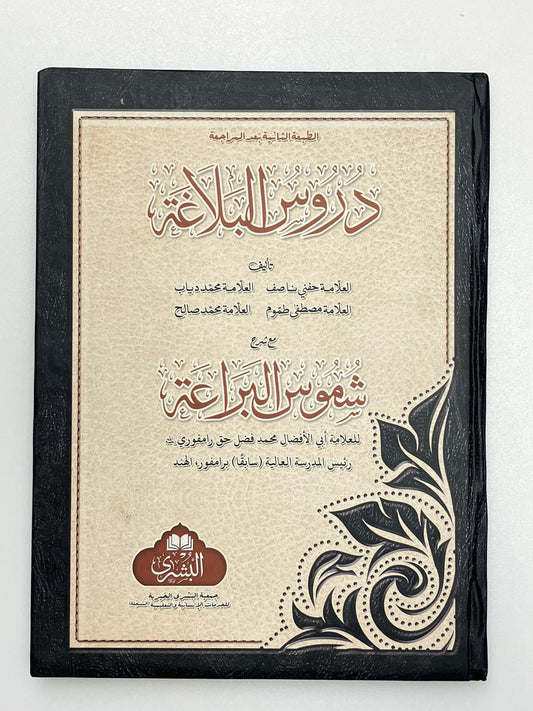 الطبعة الثانية بعد المراجعة
دُرُوسُ البَلَاغَة
تأليف
العلامة حفني ناصف العلامة محمد دياب
العلامة مصطفى طموم العلامة محمد صالح
مع شرح
شُمُوسُ البَرَاعَة
للعلامة أبي الأفضال محمد فضل حق رامفوري
رئيس المدرسة العالية (سابقًا) برامفور، الهند
البُشْرَى
جمعية البشرى الخيرية
للخدمات الإنسانية والتعليمية